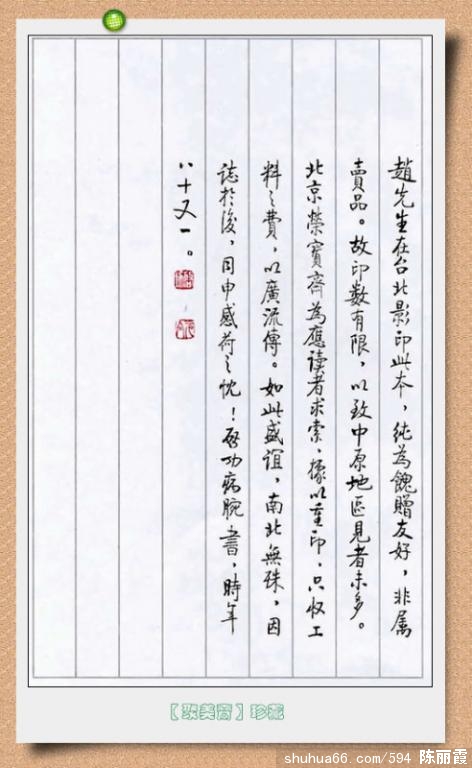 趙先生在台北影印此本，純為餽贈友好，非属
賣品。故印数有限，以致中原地區見者未多。
北京榮寶齋為應读者求索，據以重印，只收工
料之費，以廣流傳。如此盛誼，南北無殊，因
誌於後，用申感荷之忱！啓功病腕書，時年
八十又一。
【聚美斋】珍藏
shuhua66.com/594 陈丽霞